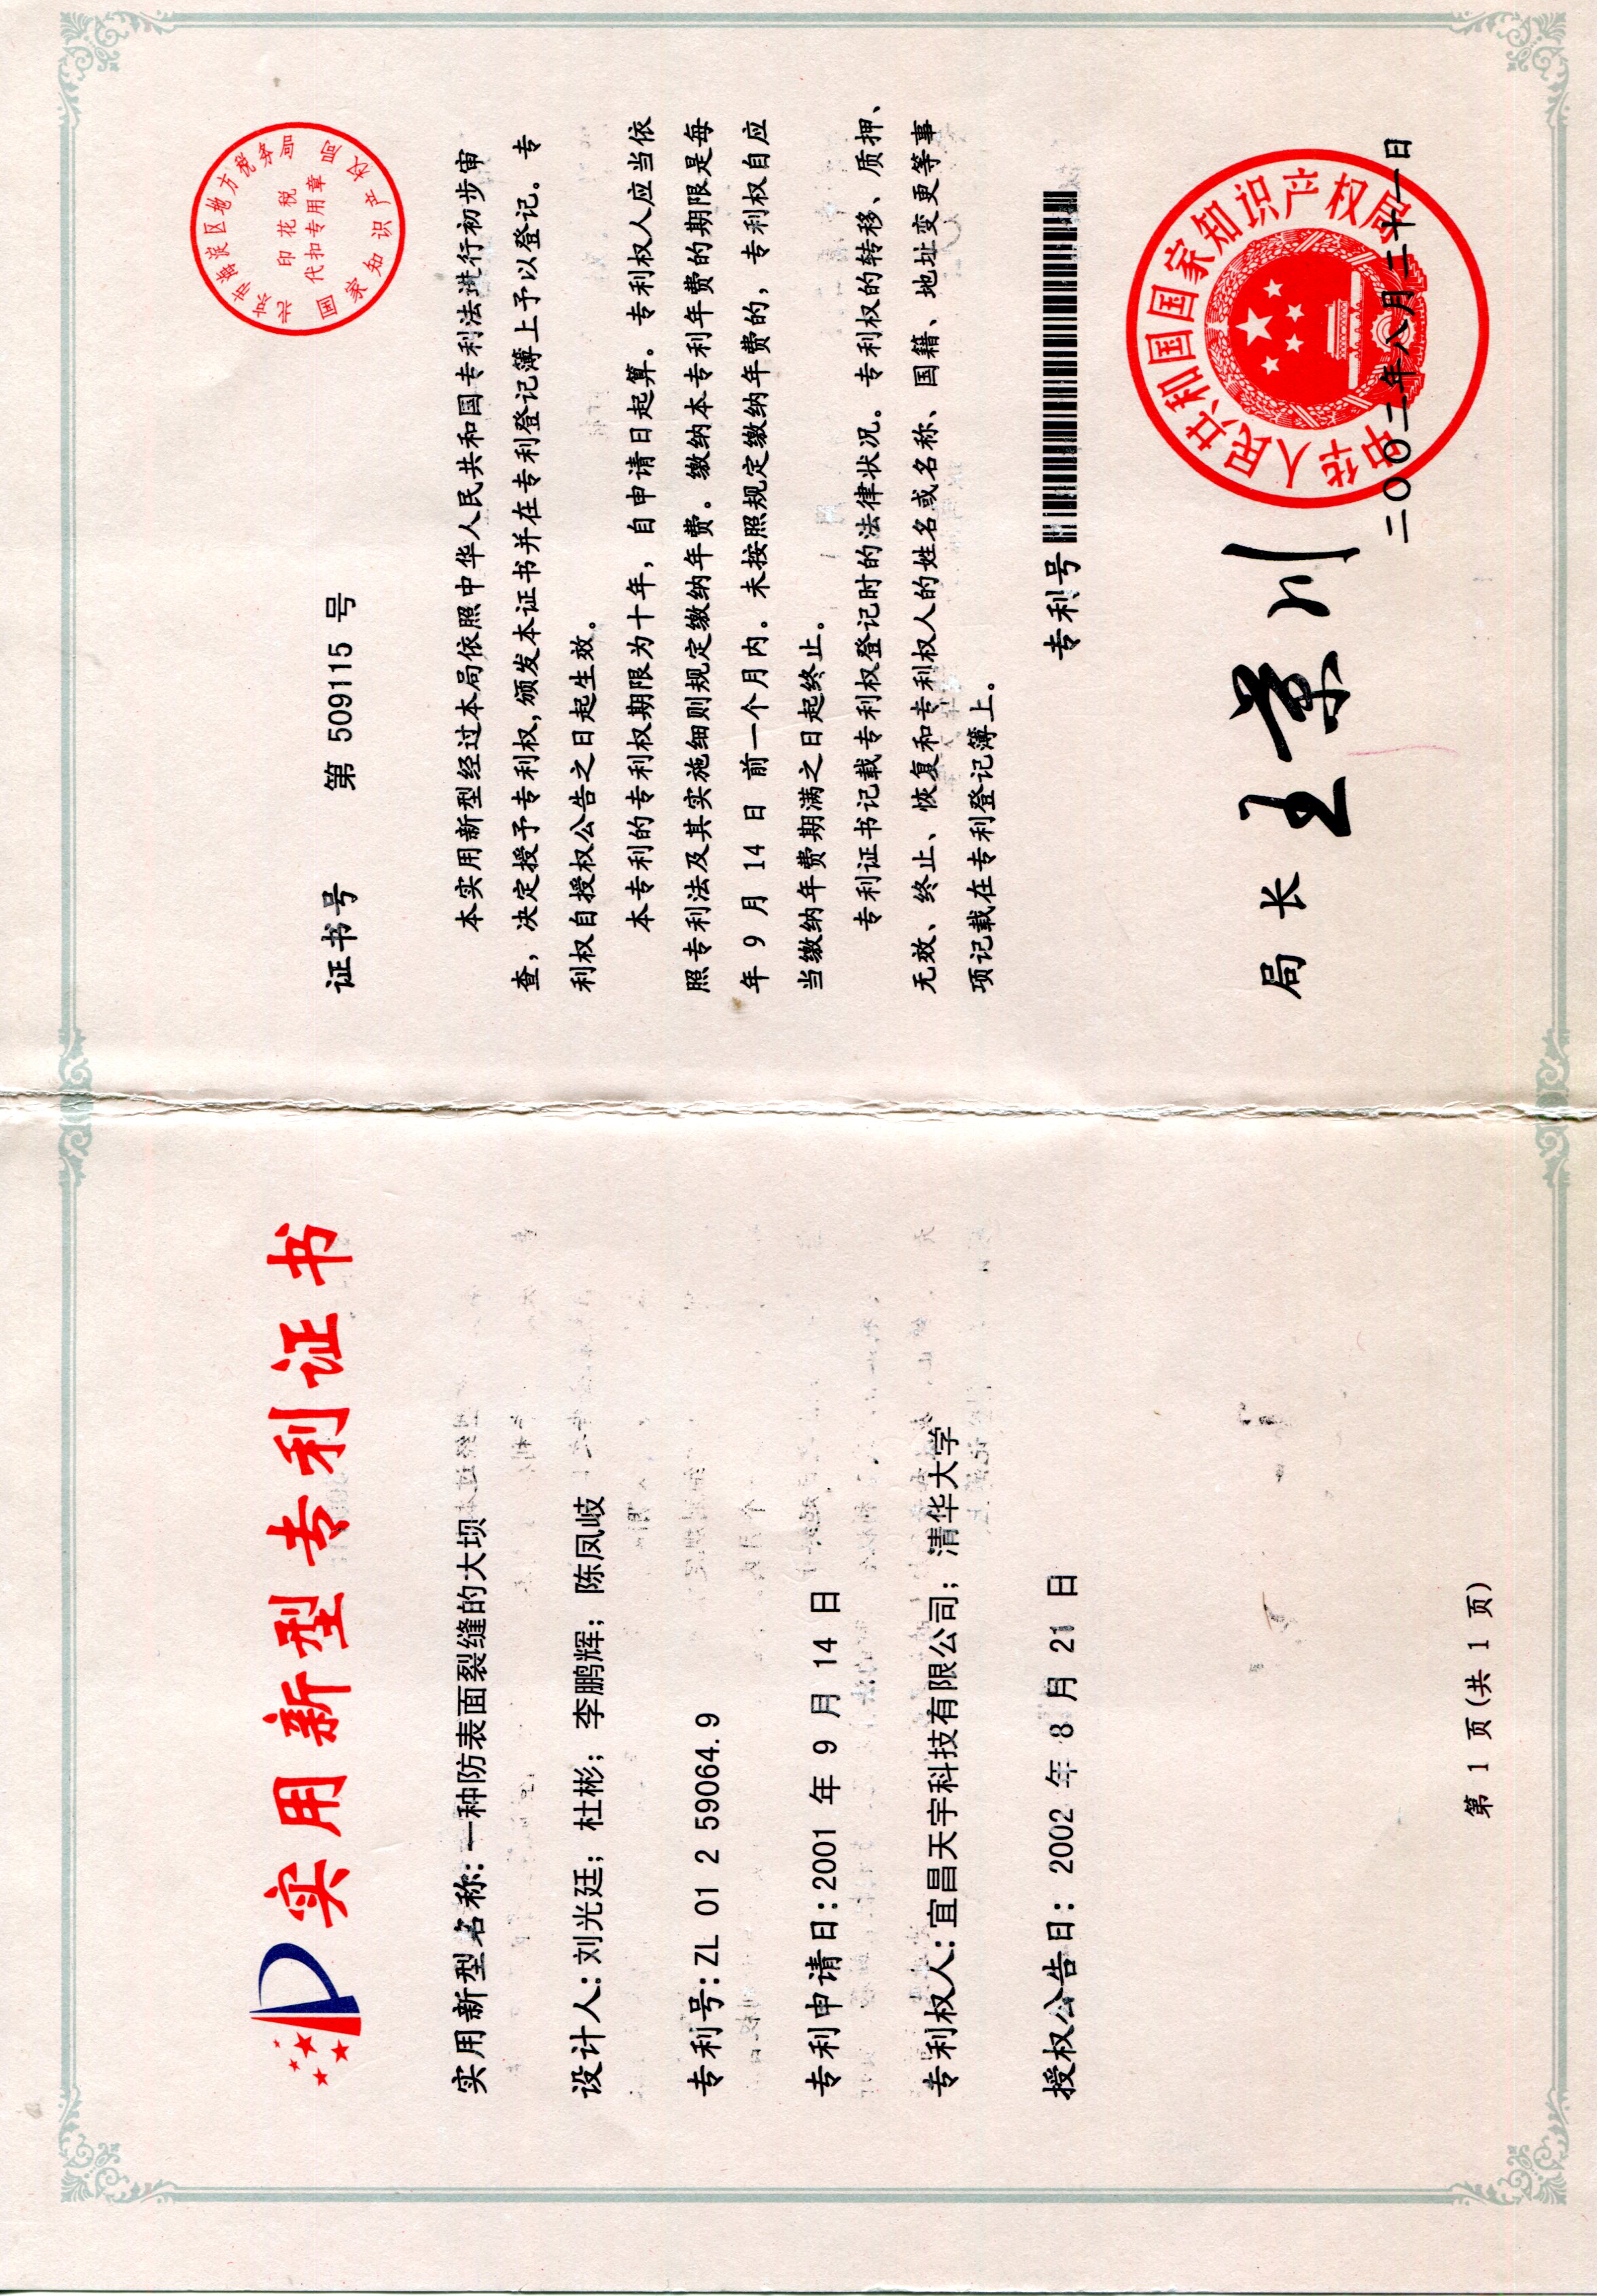 实用新型专利证书
实用新型名称:一种防表面裂缝的大坝
设计人:刘光廷；杜彬；李鹏辉；陈凤岐
专利号:ZL 01 2 59064.9
专利申请日:2001 年 9 月 14 日
专利权人:宜昌天宇科技有限公司；清华大学
授权公告日: 2002 年 8 月 21 日
第 1 页(共 1 页)
印花税
代扣专用章
国家知识产权局
证书号 第 509115 号
本实用新型经过本局依照中华人民共和国专利法进行初步审
查，决定授予专利权,颁发本证书并在专利登记簿上予以登记。专
利权自授权公告之日起生效。
本专利的专利权期限为十年，自申请日起算。专利权人应当依
照专利法及其实施细则规定缴纳年费。缴纳本专利年费的期限是每
年 9 月 14 日 前一个月内。未按照规定缴纳年费的，专利权自应
当缴纳年费期满之日起终止。
专利证书记载专利权登记时的法律状况。专利权的转移、质押、
无效、终止、恢复和专利权人的姓名或名称、国籍、地址变更等事
项记载在专利登记簿上。
专利号
局长 王景川
中华人民共和国国家知识产权局
二〇〇二年八月二十一日